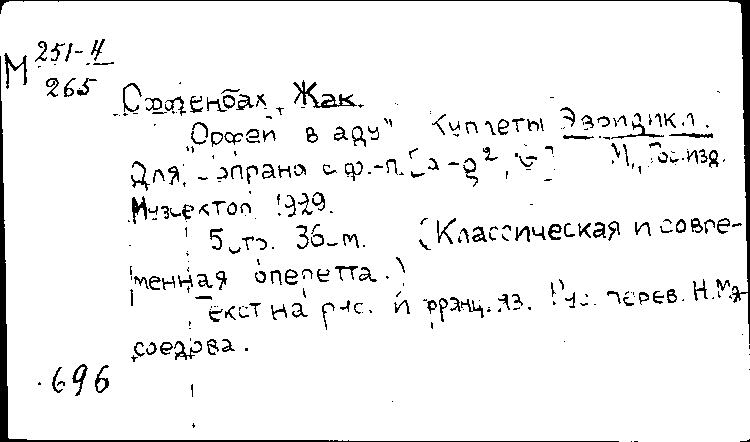 М 251-4
265
Оффенбах, Жак.
"Орфей в аду" Куплеты Эвридики.
Для сопрано с ф.-п. [a-g², ] М., Гос. изд.
Музсектор 1929.
5 стр. 36 см. (Классическая и совре-
менная оперетта.)
Текст на рус. и франц. яз. Рус. перев. Н. Мя-
соедова.
696